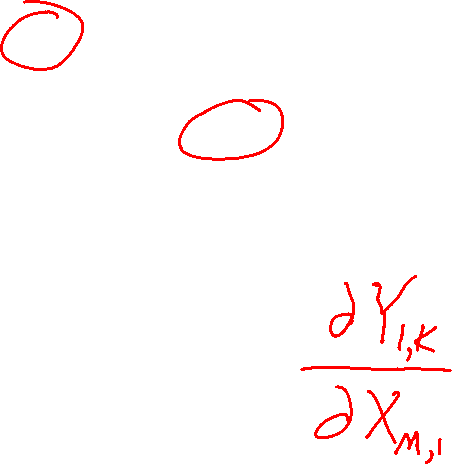 ∂Y₁,ₖ
∂X_M,₁